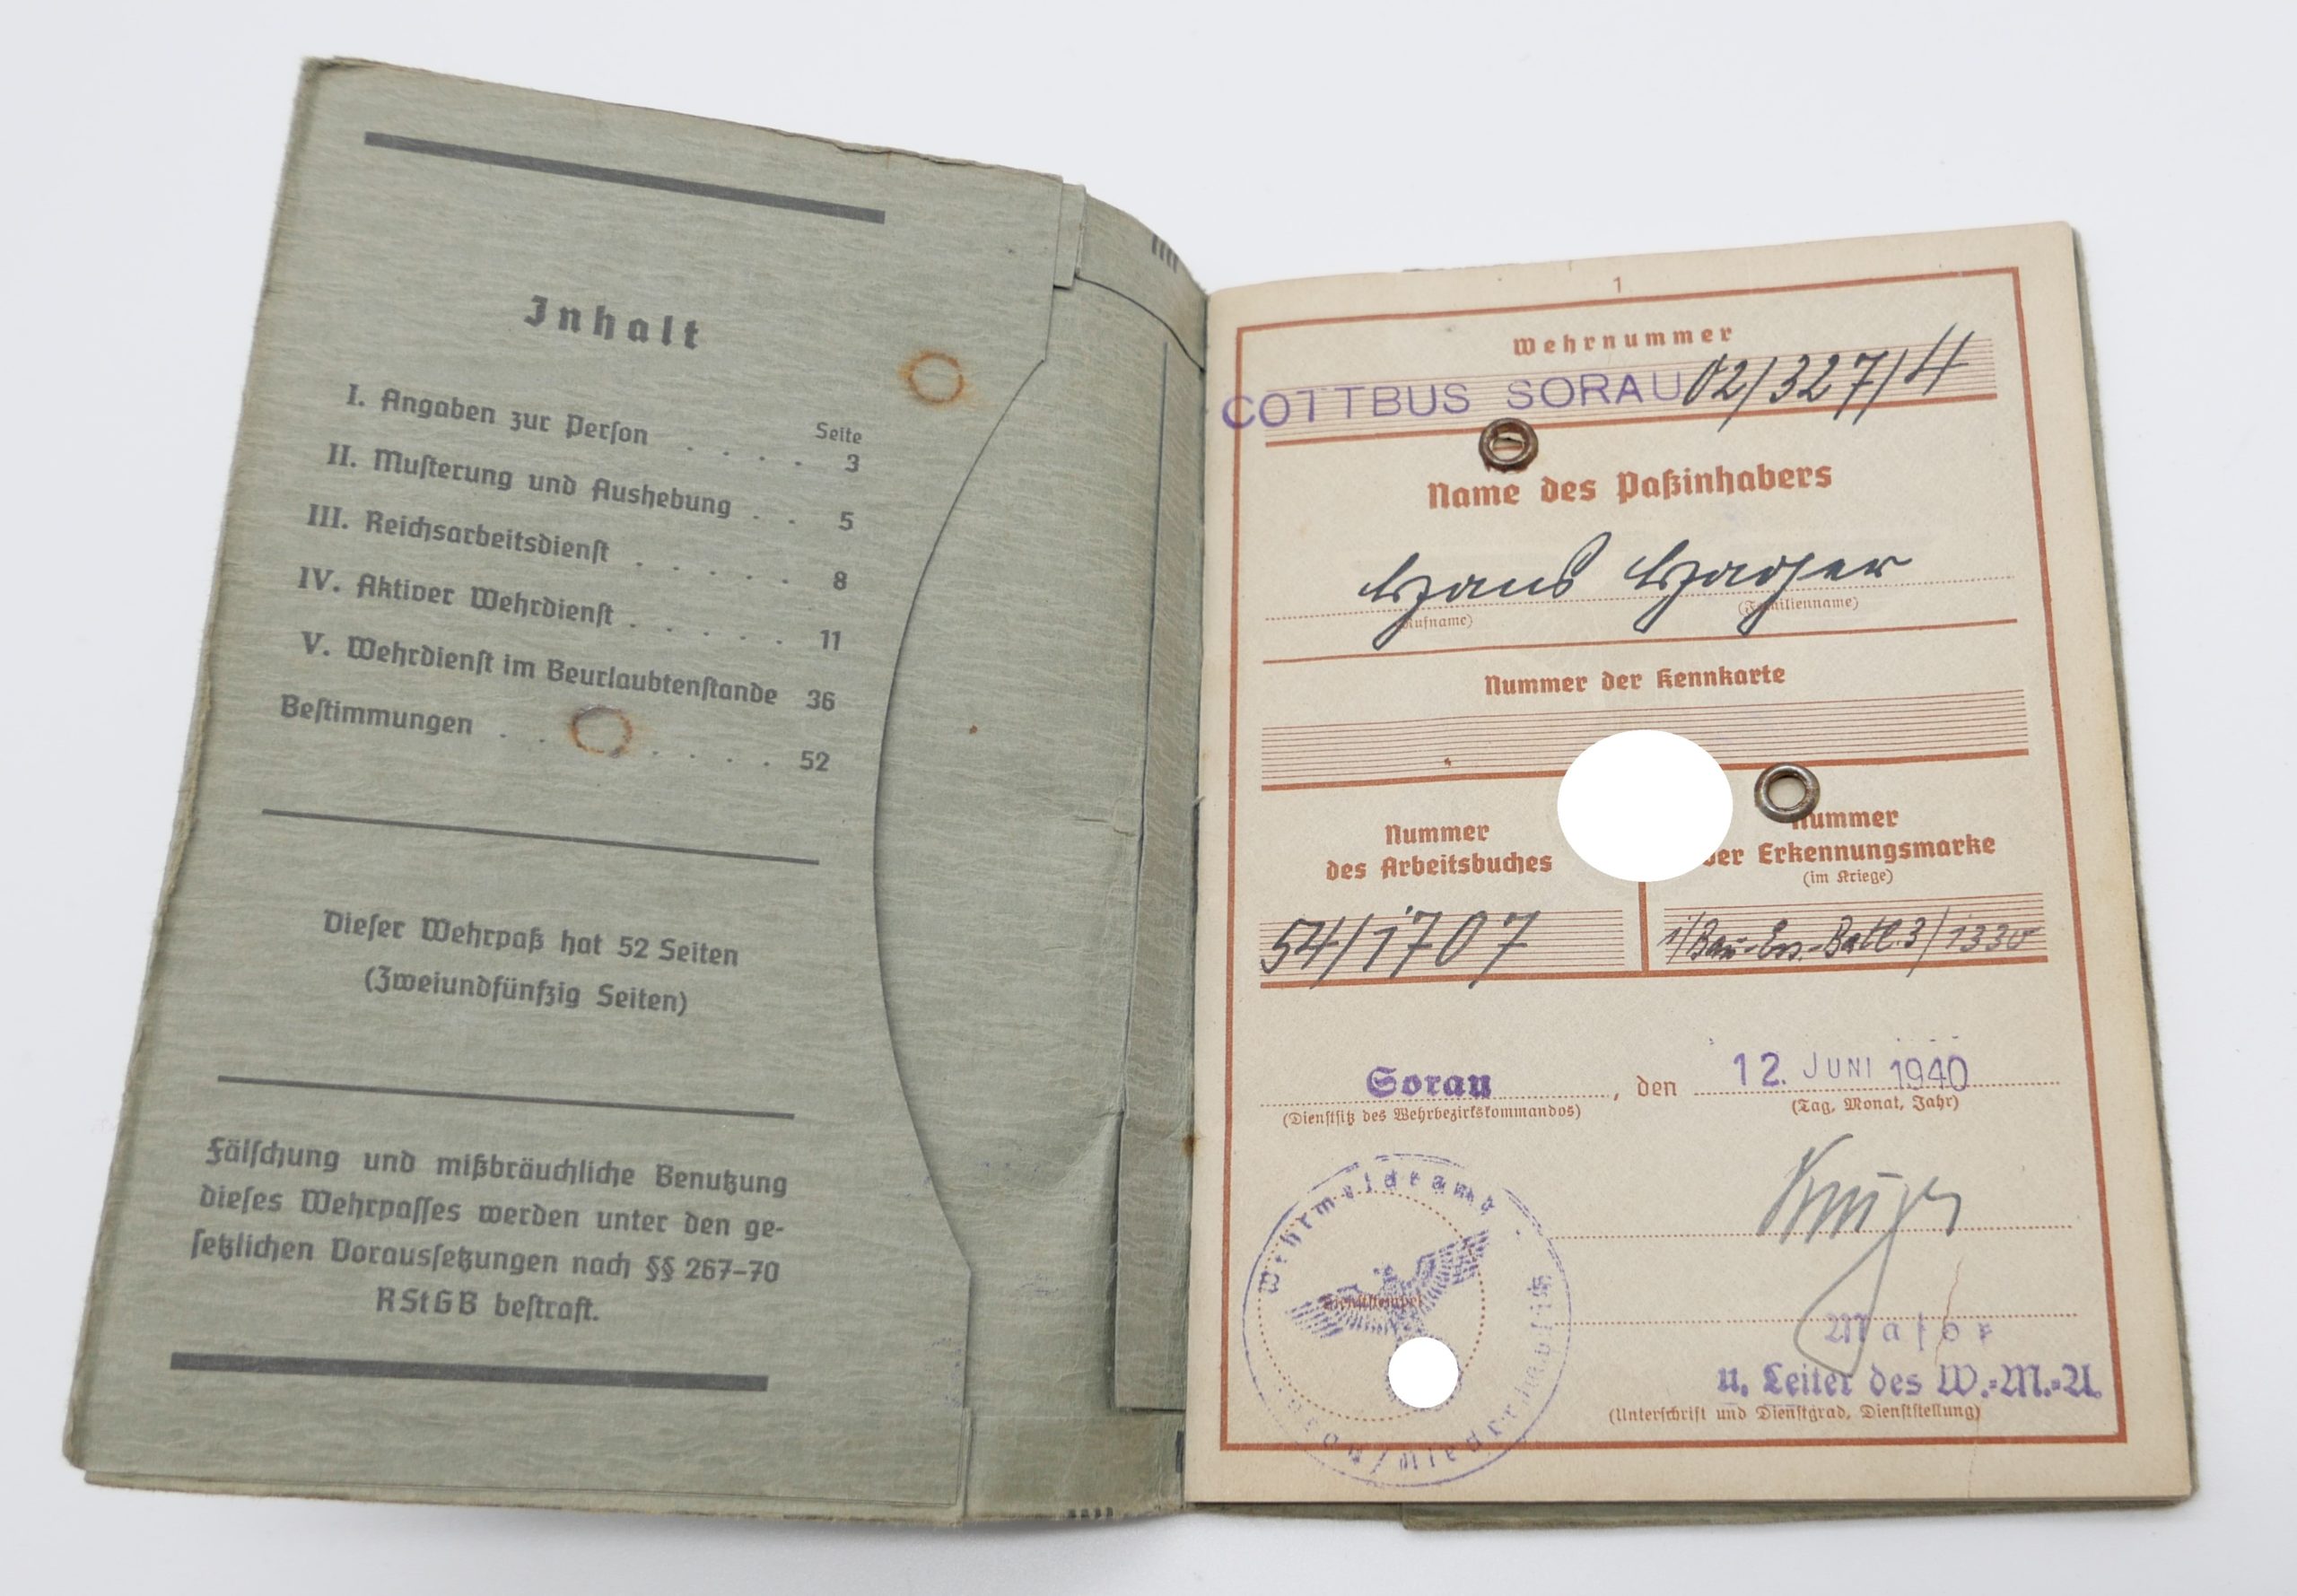 Inhalt
Seite
I. Angaben zur Person . . . . 3
II. Musterung und Aushebung . . 5
III. Reichsarbeitsdienst . . . . . 8
IV. Aktiver Wehrdienst . . . . . 11
V. Wehrdienst im Beurlaubtenstande 36
Bestimmungen . . . . . . 52
Dieser Wehrpaß hat 52 Seiten
(Zweiundfünfzig Seiten)
Fälschung und mißbräuchliche Benutzung
dieses Wehrpasses werden unter den ge-
setzlichen Voraussetzungen nach §§ 267-70
RStGB bestraft.
1
Wehrnummer
COTTBUS SORAU 02/327/4
Name des Paßinhabers
Hans
(Rufname) (Familienname)
Nummer der Kennkarte
Nummer
des Arbeitsbuches
Nummer
der Erkennungsmarke
(im Kriege)
54/1707
1/Bau-Ers.-Batl. 3/1330
Sorau, den 12. JUNI 1940
(Dienstsitz des Wehrbezirkskommandos) (Tag, Monat, Jahr)
Wehrmeldeamt
Dienststempel
Major
u. Leiter des W.=M.=A.
(Unterschrift und Dienstgrad, Dienststellung)